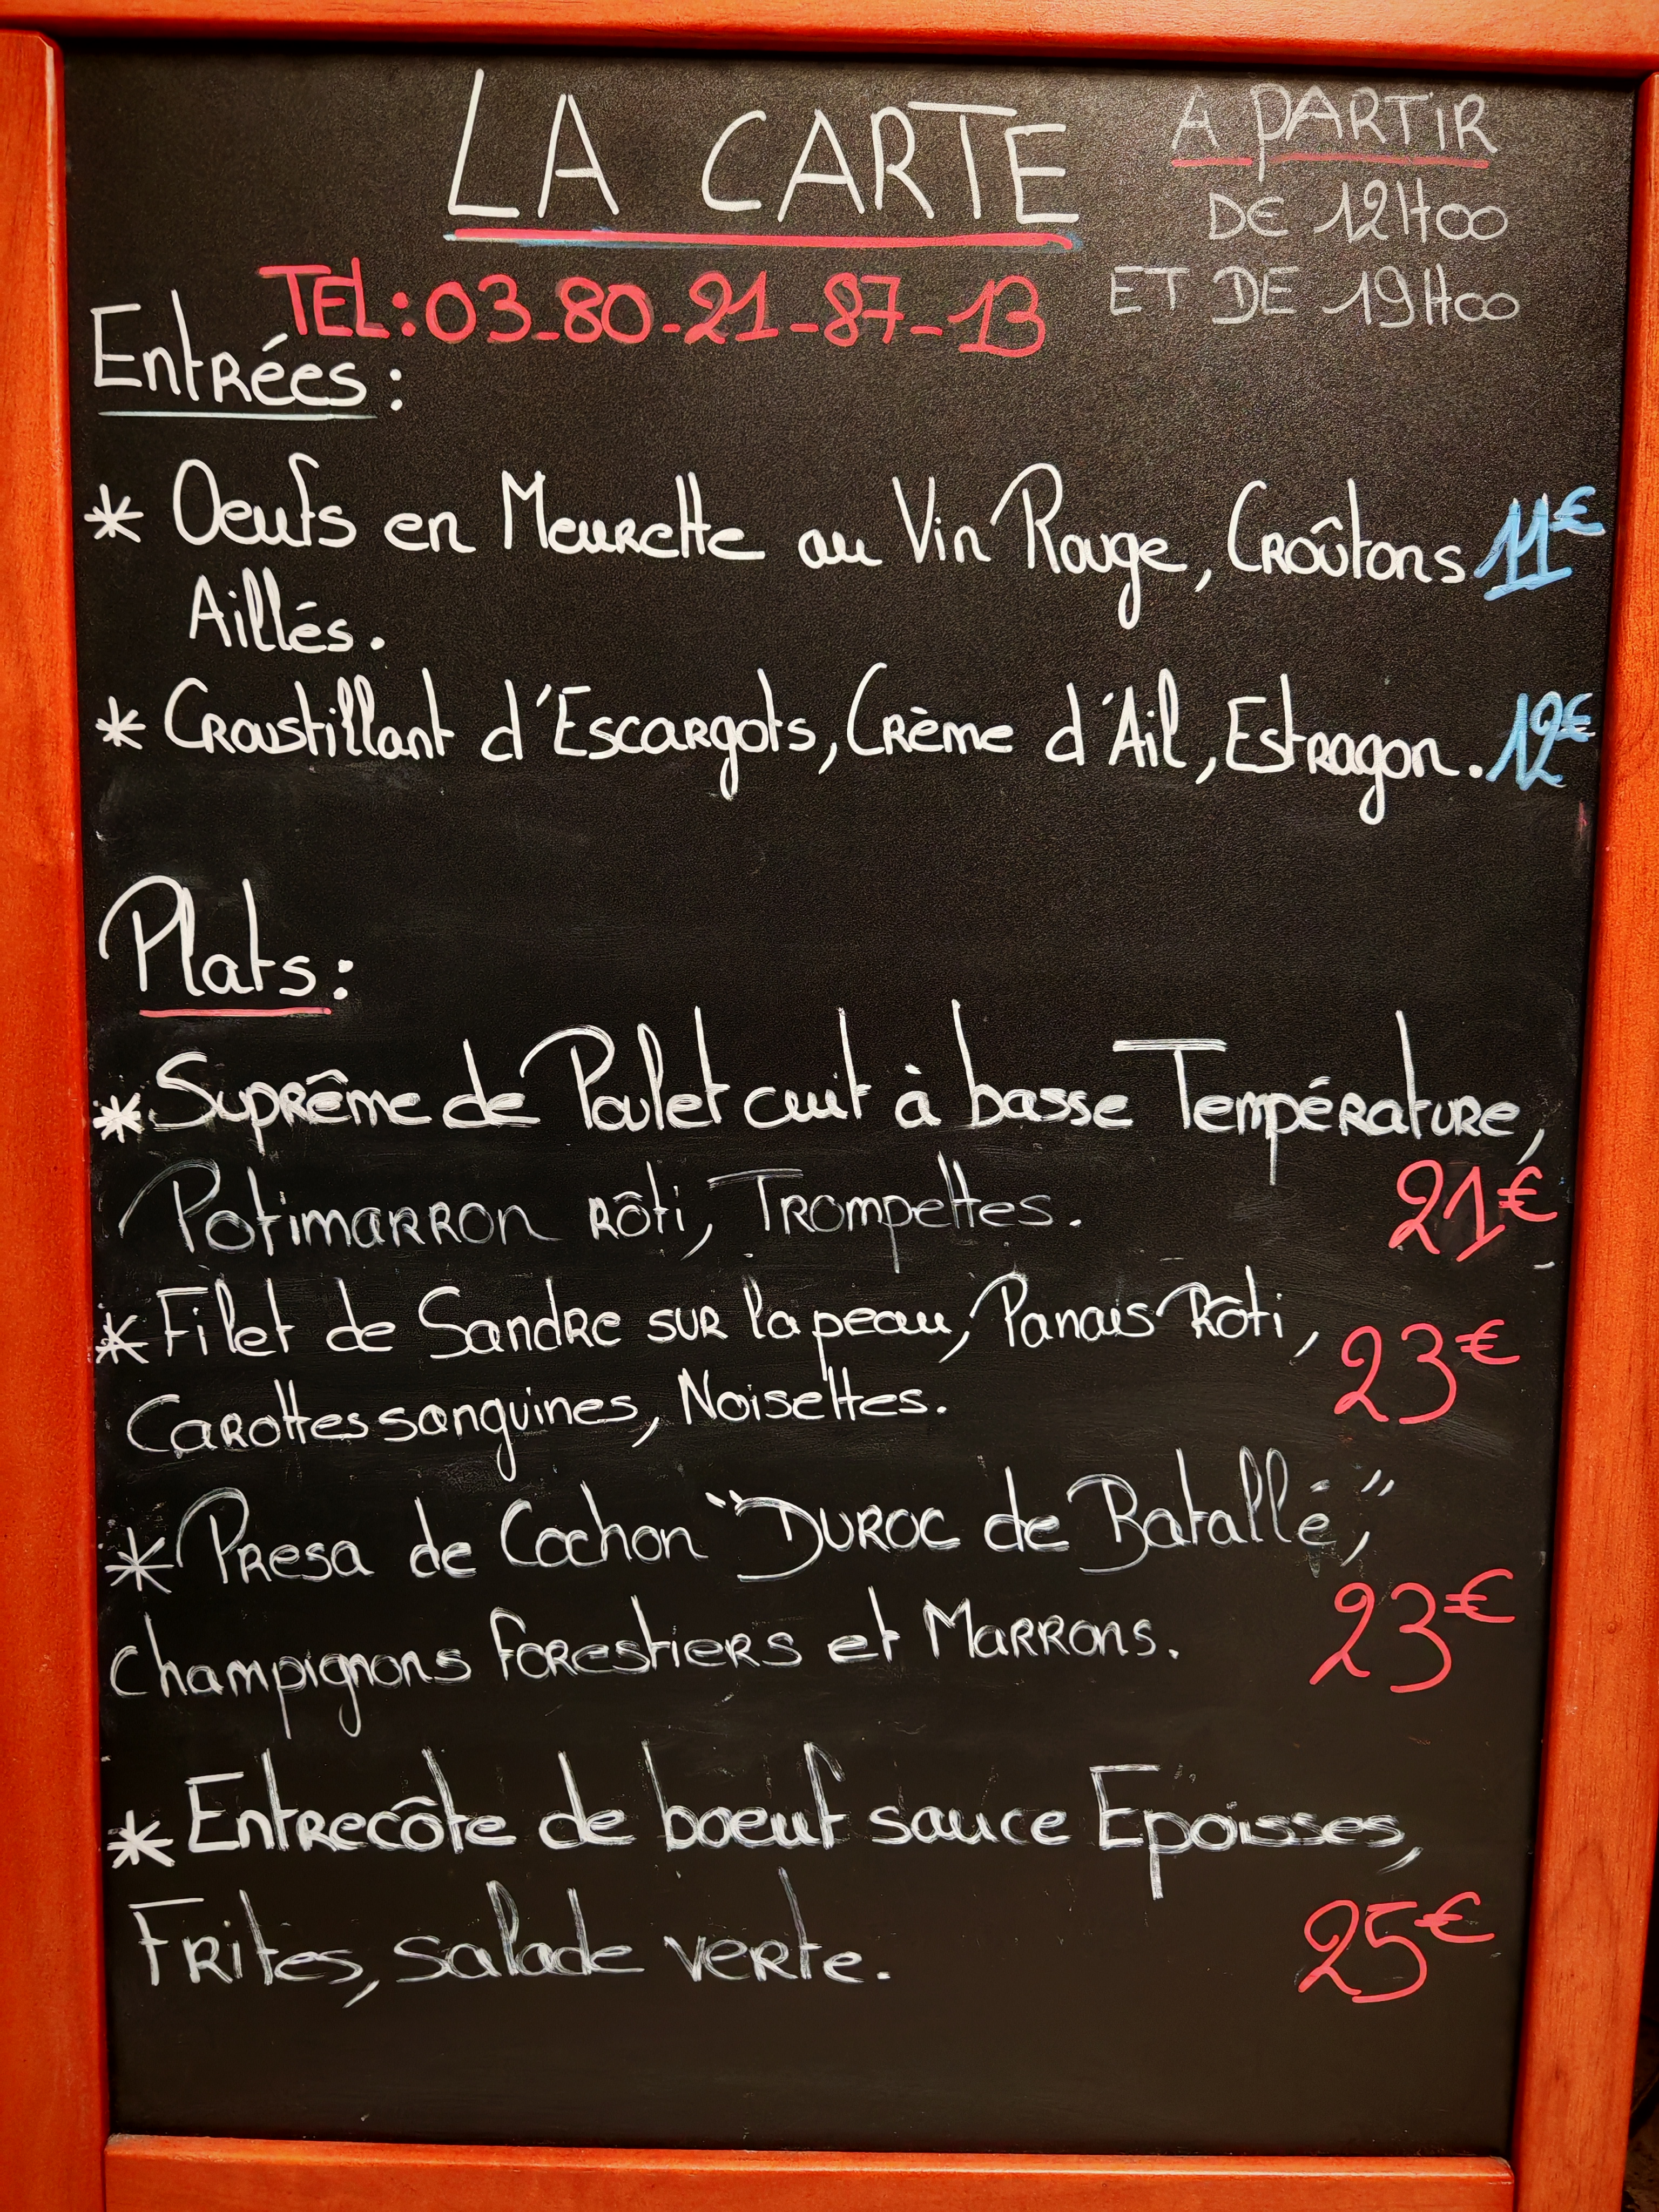 LA CARTE
A PARTIR
DE 12H00
ET DE 19H00
TEL: 03-80-21-87-13
Entrées :
* Oeufs en Meurette au Vin Rouge, Croûtons 11€
Aillés.
* Croustillant d'Escargots, Crème d'Ail, Estragon. 12€
Plats :
* Suprême de Poulet cuit à basse Température,
Potimarron rôti, Trompettes. 21€
* Filet de Sandre sur la peau, Panais Rôti, 23€
Carottes sanguines, Noisettes.
* Presa de Cochon "Duroc de Batallé,"
champignons forestiers et Marrons. 23€
* Entrecôte de boeuf sauce Epoisses,
Frites, salade verte. 25€